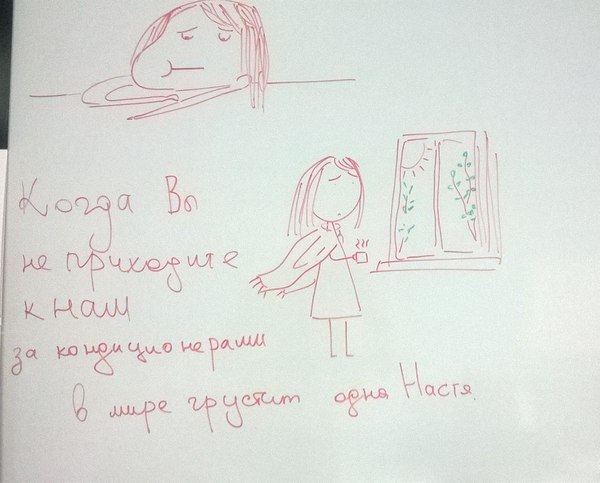 Когда Вы
не приходите
к нам
за кондиционерами
в мире грустит одна Настя.